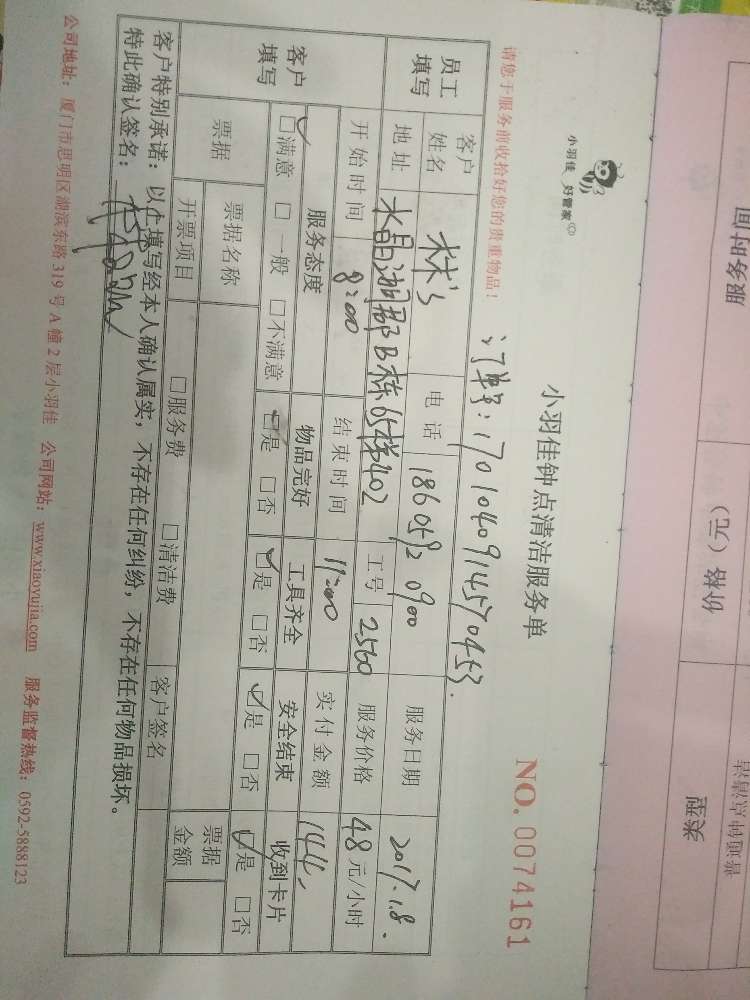 小羽佳 好管家
小羽佳钟点清洁服务单
NO. 0074161
请您于服务前收拾好您的贵重物品！
订单号：1701040914570453.
员工填写 客户姓名 林's 电话 18605920900 服务日期 2017.1.8.
地址 水晶湖郡B栋65梯402 工号 2560 服务价格 48元/小时
开始时间 8:00 结束时间 11:00 实付金额 144.
客户填写 服务态度 物品完好 工具齐全 安全结束 收到卡片
☑满意 □一般 □不满意 ☑是 □否 ☑是 □否 ☑是 □否 ☑是 □否
票据 票据名称 票据金额
开票项目 □服务费 □清洁费 客户签名
客户特别承诺：以上填写经本人确认属实，不存在任何纠纷，不存在任何物品损坏。
特此确认签名：
公司地址：厦门市思明区湖滨东路319号A幢2层小羽佳 公司网站：www.xiaoyujia.com 服务监督热线：0592-5888123
服务时间
价格（元）
类型